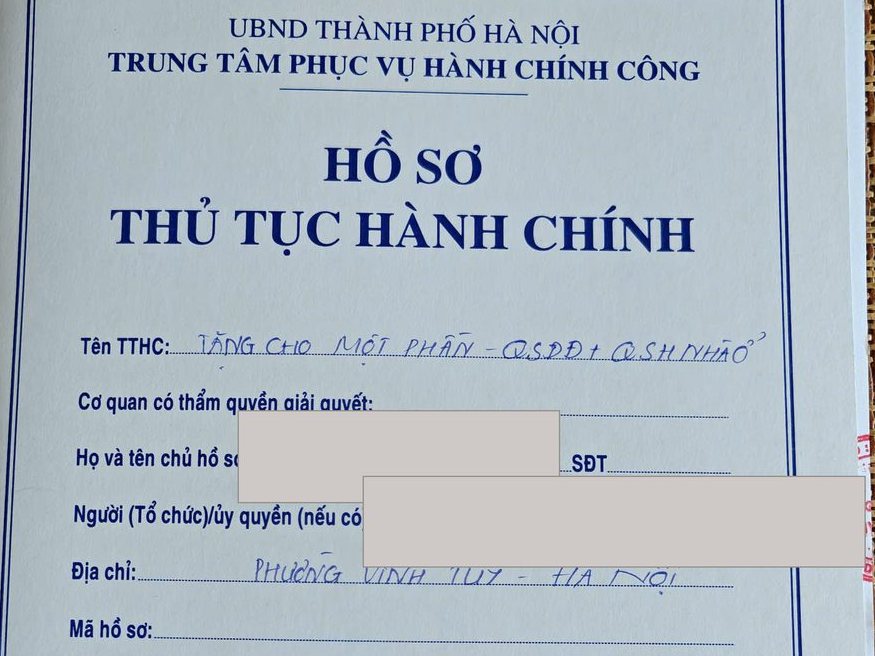 UBND THÀNH PHỐ HÀ NỘI
TRUNG TÂM PHỤC VỤ HÀNH CHÍNH CÔNG
HỒ SƠ
THỦ TỤC HÀNH CHÍNH
Tên TTHC: TẶNG CHO MỘT PHẦN - QSDĐ + QSH NHÀ Ở
Cơ quan có thẩm quyền giải quyết:
Họ và tên chủ hồ sơ SĐT
Người (Tổ chức)/ủy quyền (nếu có
Địa chỉ: PHƯỜNG VĨNH TUY - HÀ NỘI
Mã hồ sơ: